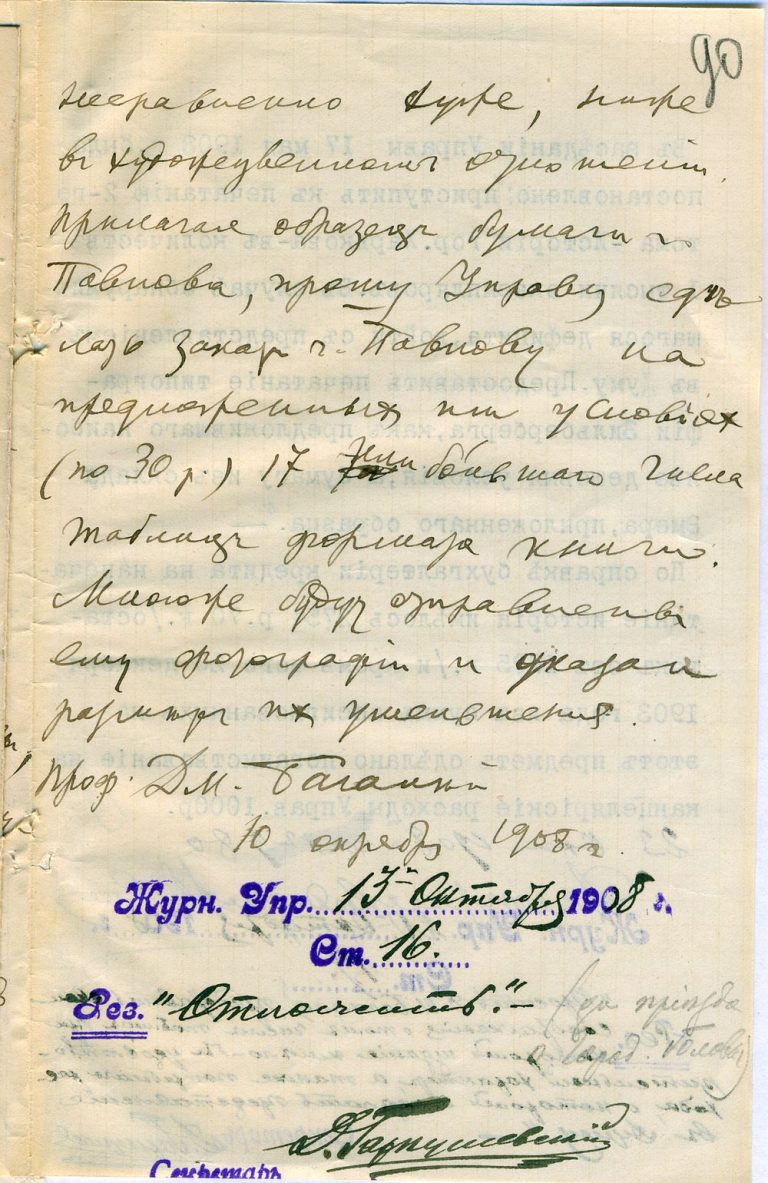 90
несравненно хуже, ниже
въ художественномъ отношеніи.
Прилагая образецъ бумаги г.
Павлова, прошу Управу сдѣ
лать заказъ г. Павлову на
предложенныхъ имъ условіяхъ
(по 30 р.) 17 или большаго числа
таблицъ формата книги.
Мною же будутъ отправлены
ему фотографіи и указан
размѣръ ихъ уменьшенія.
Проф. Дм. Багалѣй
10 октября 1908 г.
Журн. Упр. 13го Октября 1908 г.
Ст. 16.
Рез. "Отложить." — (до пріѣзда
г. Город. Головы)
Секретарь